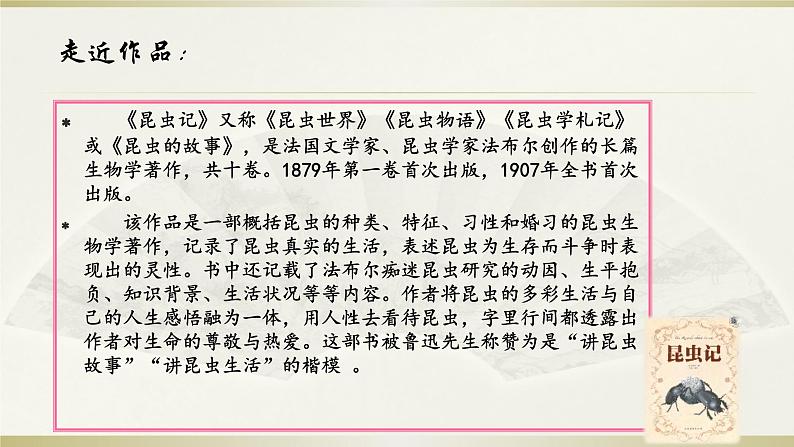 走近作品：
* 《昆虫记》又称《昆虫世界》《昆虫物语》《昆虫学札记》
或《昆虫的故事》，是法国文学家、昆虫学家法布尔创作的长篇
生物学著作，共十卷。1879年第一卷首次出版，1907年全书首次
出版。
* 该作品是一部概括昆虫的种类、特征、习性和婚习的昆虫生
物学著作，记录了昆虫真实的生活，表述昆虫为生存而斗争时表
现出的灵性。书中还记载了法布尔痴迷昆虫研究的动因、生平抱
负、知识背景、生活状况等等内容。作者将昆虫的多彩生活与自
己的人生感悟融为一体，用人性去看待昆虫，字里行间都透露出
作者对生命的尊敬与热爱。这部书被鲁迅先生称赞为是“讲昆虫
故事”“讲昆虫生活”的楷模 。
昆虫记